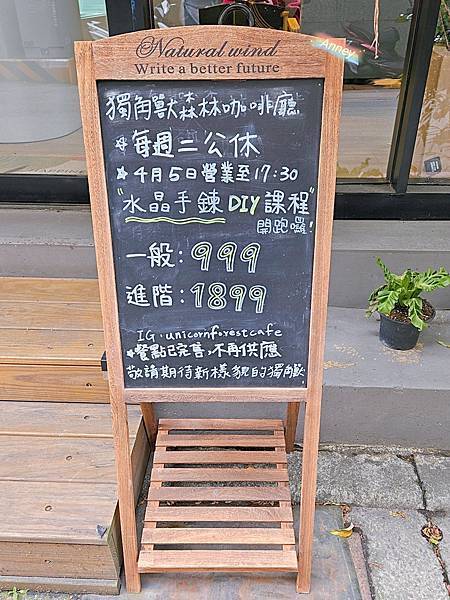 Natural wind
Write a better future
Anney
獨角獸森林咖啡廳
每週三公休
★4月5日營業至17:30
"水晶手鍊DIY課程"
開跑囉!
一般:999
進階:1899
IG:unicornforestcafe
★餐點已完售,不再供應
敬請期待新樣貌的獨角獸